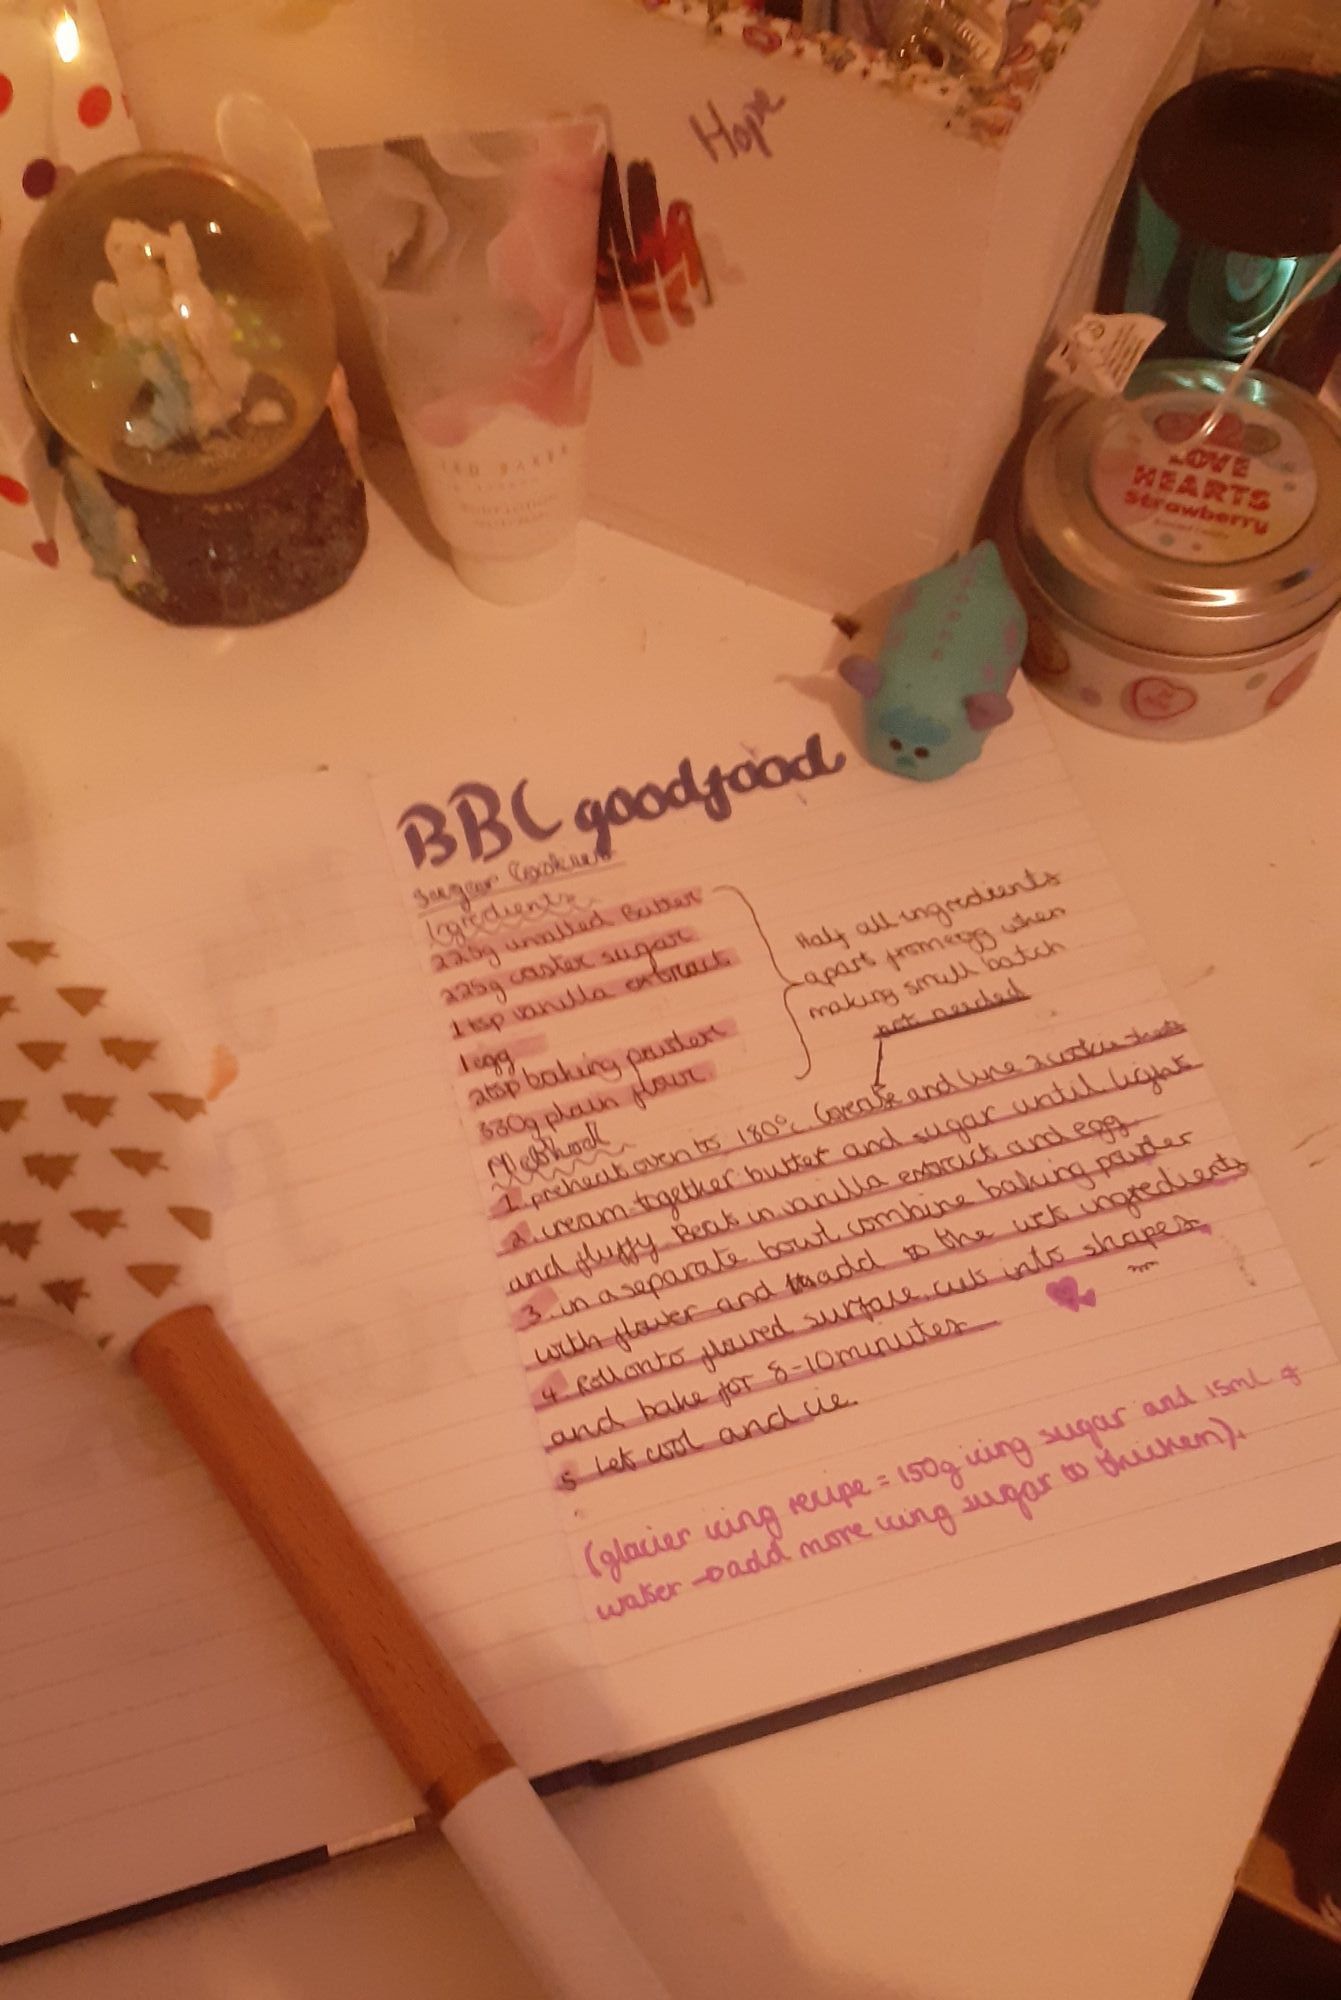 Hope
TED BAKER
LOVE
HEARTS
Strawberry
BBC goodfood
Sugar Cookies
Igredients
225g unsalted Butter
225g caster sugar
1tsp vanilla extract
1 egg
2tsp baking powder
330g plain flour
Half all ingredients
apart from egg when
making small batch
not needed
Method
1. preheat oven to 180°c Grease and line 2 cookie sheets
2. cream together butter and sugar until light
and fluffy Beat in vanilla extract and egg
3. in a separate bowl combine baking powder
with flower and add to the wet ingredients
4. Roll onto floured surface. cut into shapes
and bake for 8-10 minutes
5 Let cool and ice.
(glacier icing recipe = 150g icing sugar and 15ml of
water → add more icing sugar to thicken).